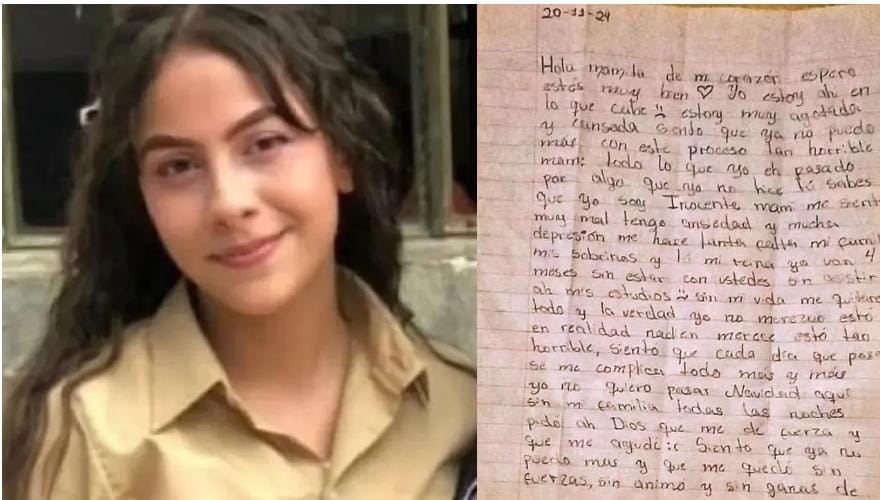 20-11-24
Hola mamita de mi corazón espero
estés muy bien ♡ Yo estoy ahi en
lo que cabe estoy muy agotada
y cansada siento que ya no puedo
más con este proceso tan horrible
mami todo lo que yo eh pasado
por algo que yo no hice tú sabes
que yo soy Inocente mami me siento
muy mal tengo ansiedad y mucha
depresión me hace tanta falta mi famili
mis sobrinas y tú mi reina ya van 4
meses sin estar con ustedes sin asistir
ah mis estudios sin mi vida me quitaro
todo y la verdad yo no merezco estó
en realidad nadien merece estó tan
horrible, siento que cada día que pasa
se me complica todo más y más
yo no quiero pasar Navidad aquí
sin mi familia todas las noches
pidó ah Dios que me de fuerza y
que me ayude :c Siento que ya no
puedo más y que me quedo sin
fuerzas, sin animo y sin ganas de